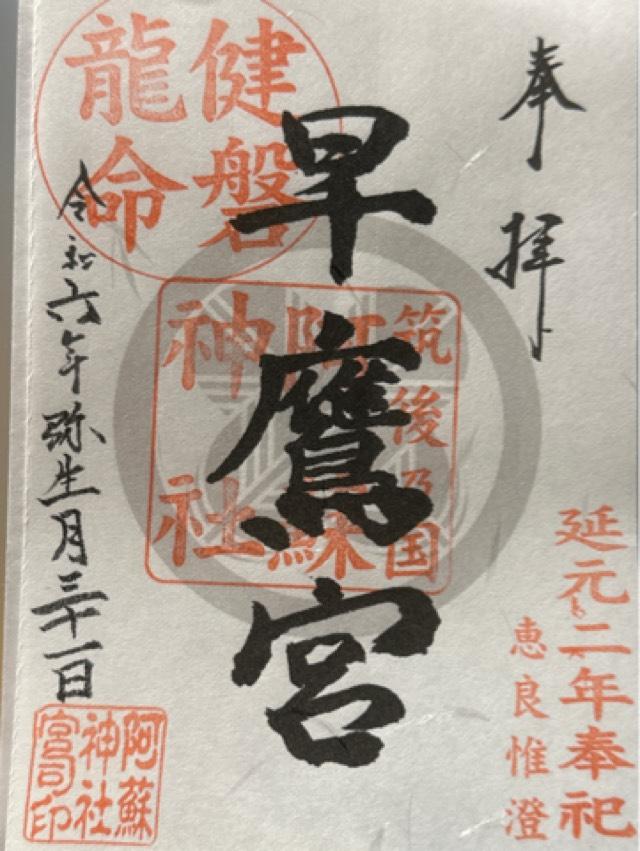 奉拝
早鷹宮
健磐
龍命
筑後乃国
阿蘇
神社
延元二年奉祀
恵良惟澄
令和六年弥生月三十一日
阿蘇
神社
宮司印